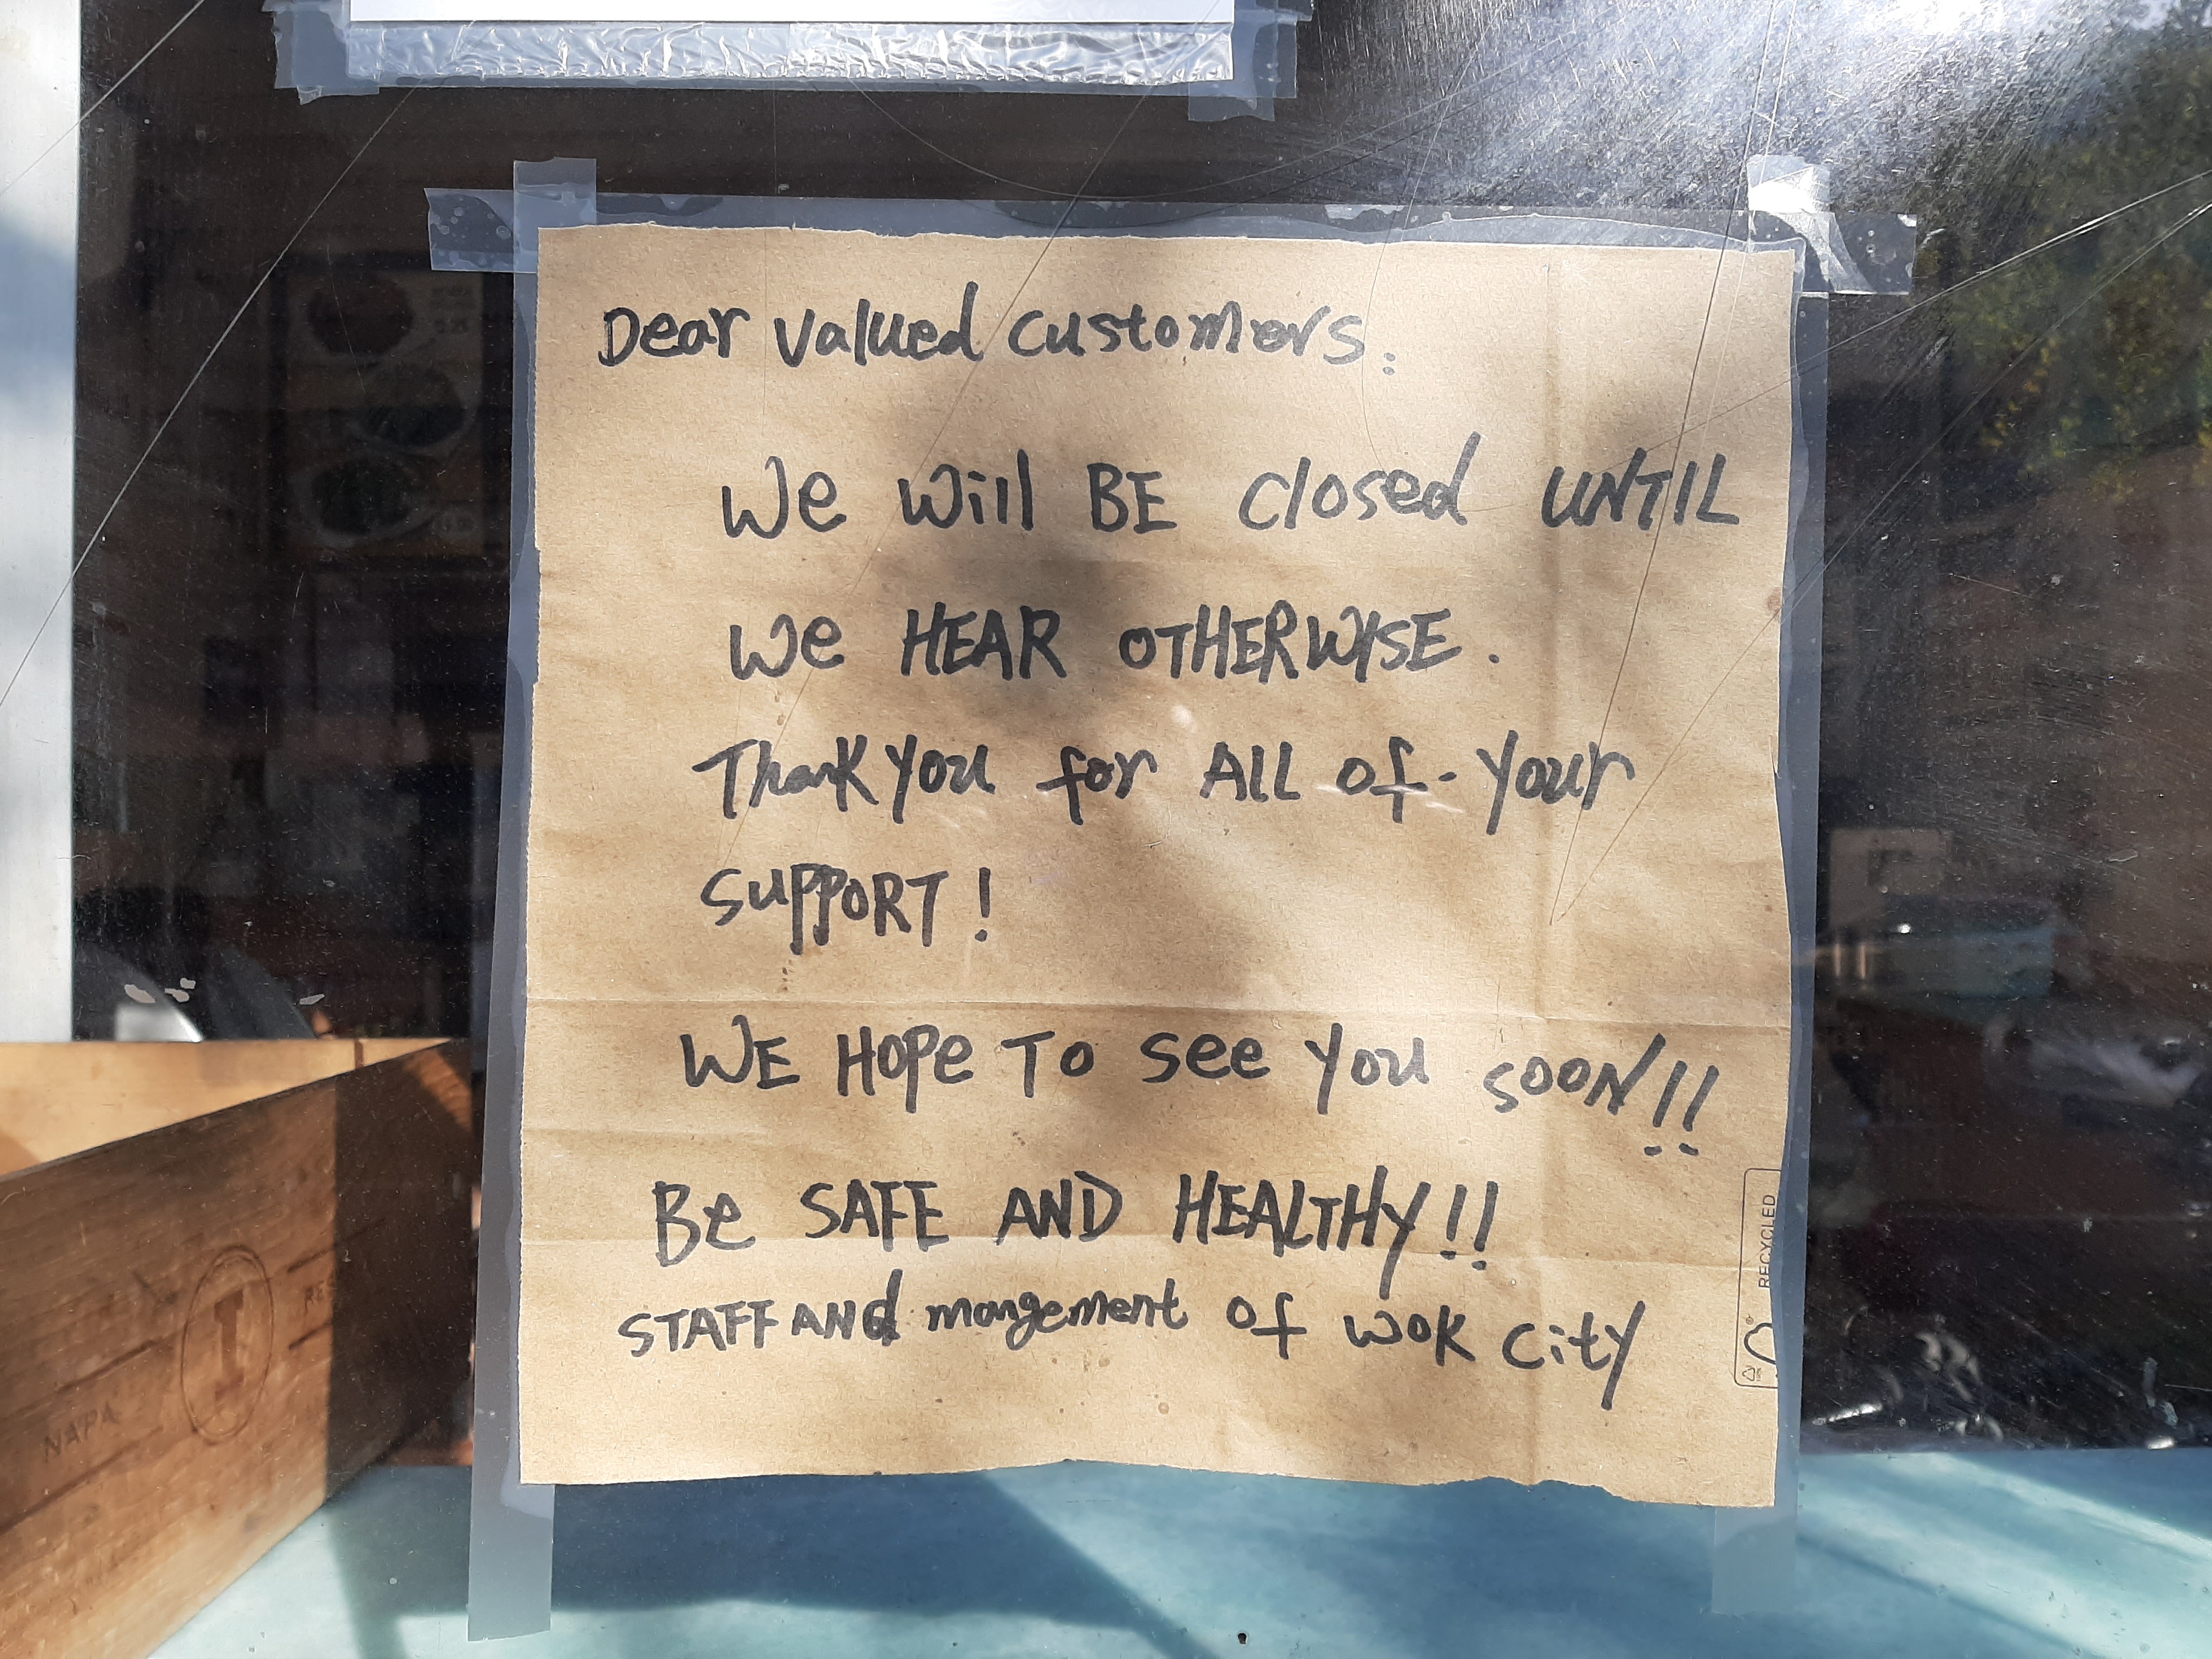 Dear valued customers:
We will BE closed UNTIL
We HEAR OTHERWISE.
Thank you for ALL of your
SUPPORT!
WE HOPe TO see you SOON!!
Be SAFE AND HEALTHY!!
STAFF ANd mangement of wok city
RECYCLED
NAPA
I